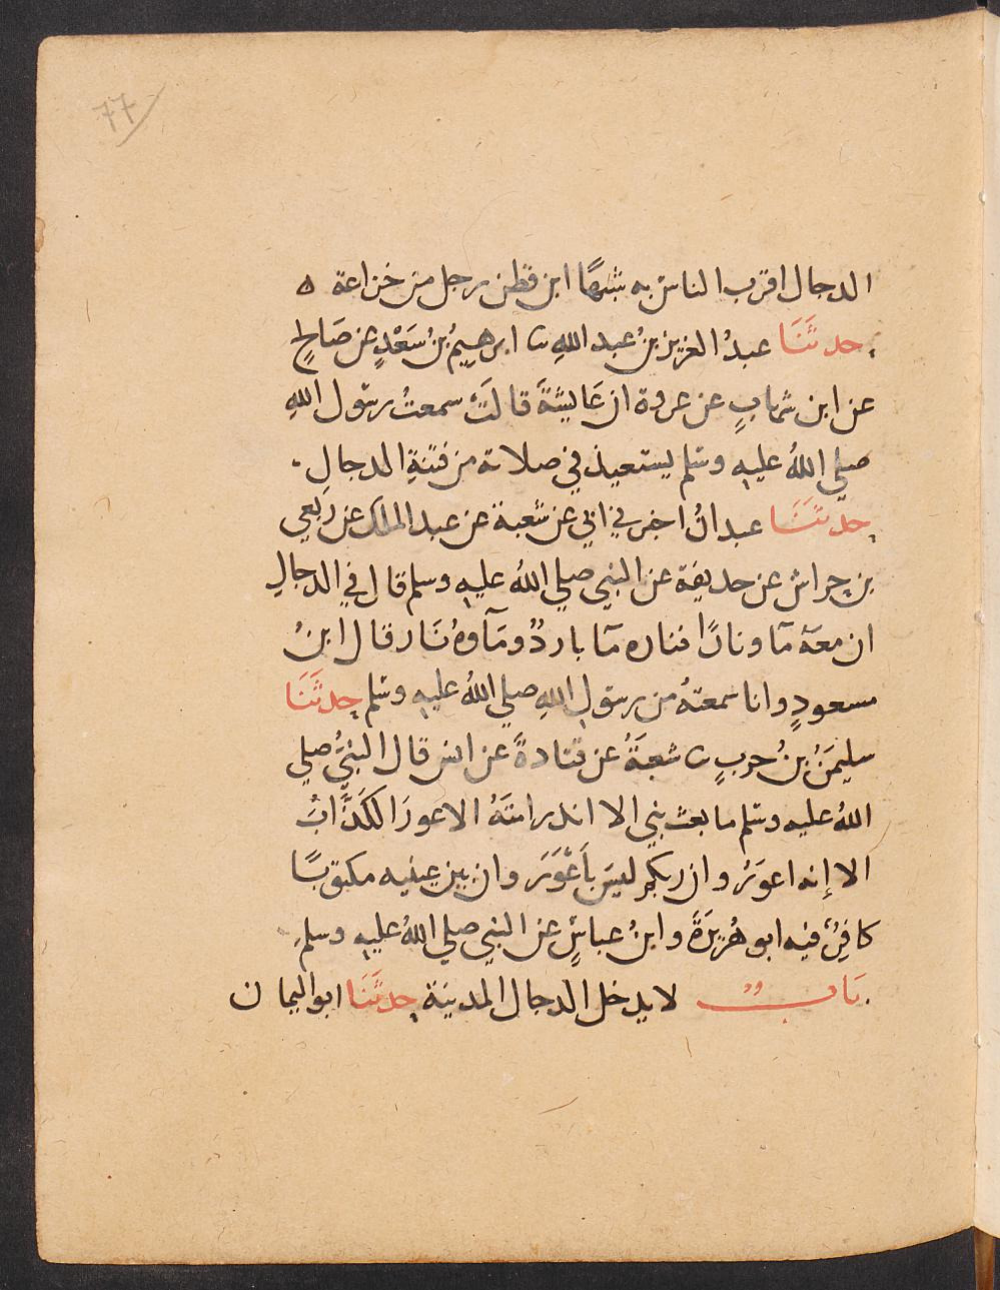 77
الدجال اقرب الناس به شبهًا ابن قطن رجل من خزاعة ه
حدثَنَا عبدُ العزيز بنُ عبد اللهِ ثنا ابرهيمُ بنُ سَعْدٍ عن صَالحٍ
عن ابن شهابٍ عن عروة ان عَايشةَ قالَتْ سمعتُ رسول اللهِ
صلي اللهُ عليهِ وسلم يستعيذ في صلاته من فتنةِ الدجالِ
حدثَنَا عبدانُ اخبرني ابي عن شعبة عن عبد الملك عن رِبْعي
بن حِراش عن حذيفة عن النبي صلي اللهُ عليهِ وسلم قال في الدجالِ
ان معهَ مآ ونارًا فناره مآ باردٌ ومَآوهُ نَار قال ابنُ
مسعودٍ وانا سمعتهُ من رسولِ اللهِ صلي اللهُ عليهِ وسلم حدثَنَا
سليمَنُ بنُ حربٍ ثنا شعبَةُ عن قتادةَ عن انس قال النبيُّ صلي
اللهُ عليه وسلم ما بعث نبي الا انذر امتَهُ الاعورَ الكَذَّابَ
الا إنه اعوَرُ وان ربكم ليسَ بأَعْوَرَ وان بين عينيه مكتوبًا
كافِرٌ فيه ابو هُرَيْرَةَ وابنُ عباسٍ عن النبي صلي اللهُ عليهِ وسلم
بَاب لا يدخل الدجال المدينة حدثَنَا ابو اليمان